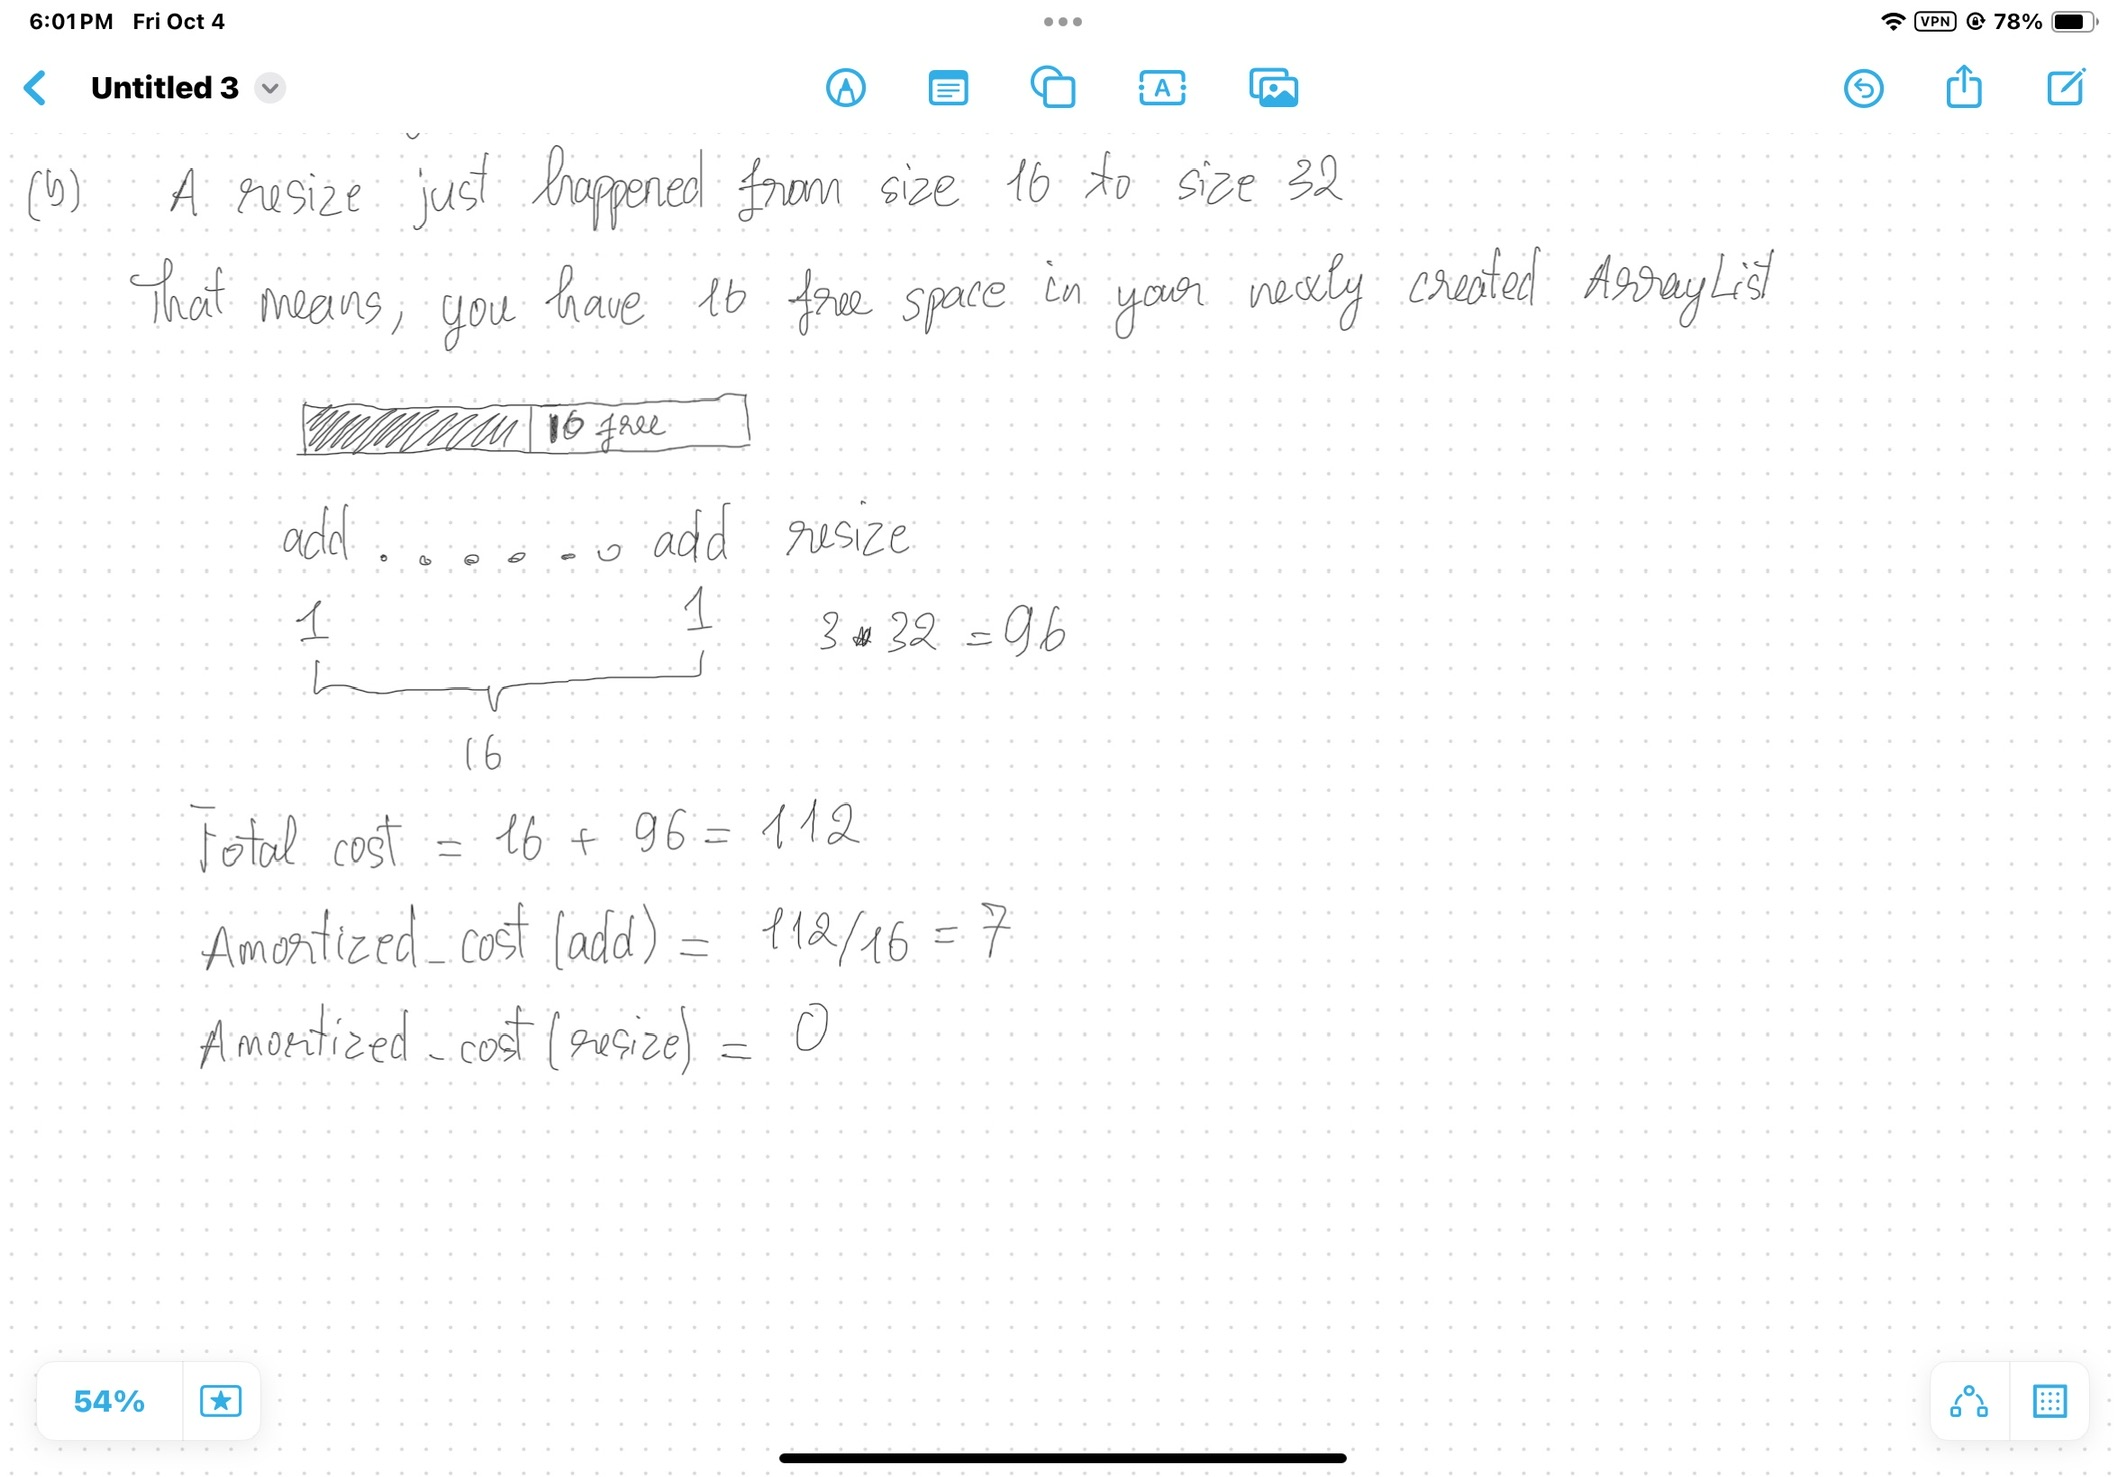 6:01 PM Fri Oct 4
VPN 78%
Untitled 3
A
(b) A resize just happened from size 16 to size 32
That means, you have 16 free space in your newly created ArrayList
16 free
add . . . . . . add resize
1 1 3 * 32 = 96
16
Total cost = 16 + 96 = 112
Amortized_cost (add) = 112/16 = 7
Amortized_cost (resize) = 0
54%